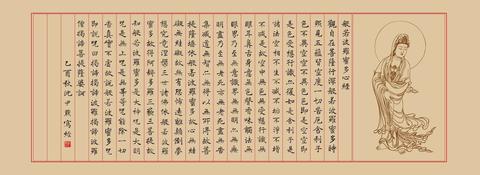 般若波羅蜜多心經
觀自在菩薩行深般若波羅蜜多時
照見五蘊皆空度一切苦厄舍利子
色不異空空不異色色即是空空即
是色受想行識亦復如是舍利子是
諸法空相不生不滅不垢不淨不增
不減是故空中無色無受想行識無
眼耳鼻舌身意無色聲香味觸法無
眼界乃至無意識界無無明亦無無
明盡乃至無老死亦無老死盡無苦
集滅道無智亦無得以無所得故菩
提薩埵依般若波羅蜜多故心無罣
礙無罣礙故無有恐怖遠離顛倒夢
想究竟涅槃三世諸佛依般若波羅
蜜多故得阿耨多羅三藐三菩提故
知般若波羅蜜多是大神咒是大明
咒是無上咒是無等等咒能除一切
苦真實不虛故說般若波羅蜜多咒
即說咒曰揭諦揭諦波羅揭諦波羅
僧揭諦菩提薩婆訶
乙酉秋沈中 寫經